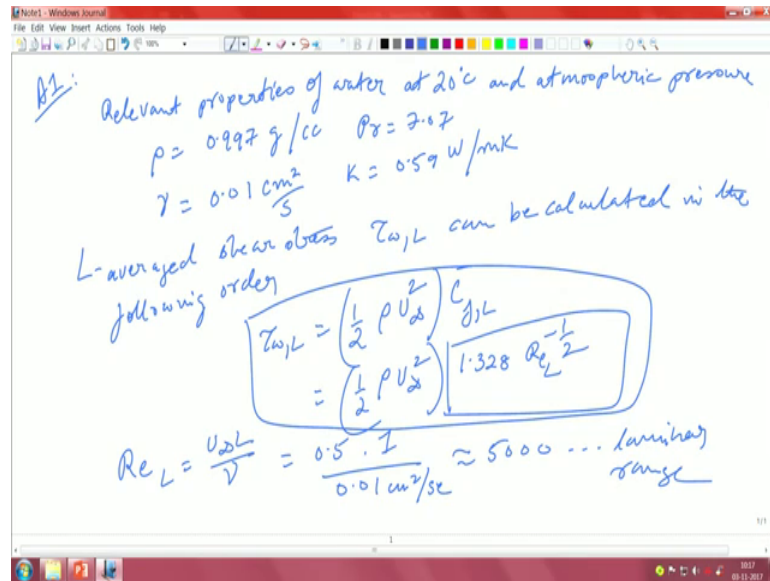 Note1 - Windows Journal
File Edit View Insert Actions Tools Help
100%
A1:
Relevant properties of water at 20°C and atmospheric pressure
ρ = 0.997 g/cc Pr = 7.07
γ = 0.01 cm²/s K = 0.59 W/mK
L-averaged shear stress τw,L can be calculated in the
following order
τw,L = (1/2 ρ U∞²) Cf,L
= (1/2 ρ U∞²) 1.328 ReL^-1/2
ReL = U∞L/ν = 0.5 . 1/0.01 cm²/se ≈ 5000 ... laminar
range
1/1
1
10:17
03-11-2017